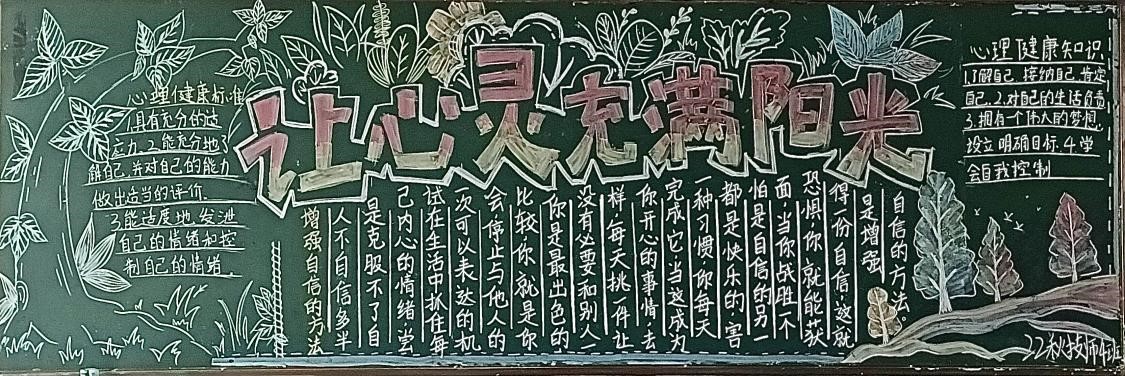 让心灵充满阳光
心理健康标准
1.具有充分的适
应力.2.能充分地了
解自己.并对自己的能力
做出适当的评价.
3.能适度地.发泄
自己的情绪和控
制自己的情绪.
增强自信的方法
人不自信多半
是克服不了自
己内心的情绪,尝
试在生活中抓住每
一次可以表达的机
会,停止与他人的
比较,你就是你
你是最出色的
没有必要和别人一
样,每天挑一件让
你开心的事情去
完成它,当这成为
一种习惯,你每天
都是快乐的,害
怕是自信的另一
面,当你战胜一个
恐惧,你就能获
得一份自信,这就
是增强
自信的方法
心理健康知识
1.了解自己.接纳自己.肯定
自己.2.对自己的生活负责
3.拥有一个伟大的梦想.
设立明确目标.4.学
会自我控制
22秋技师4班